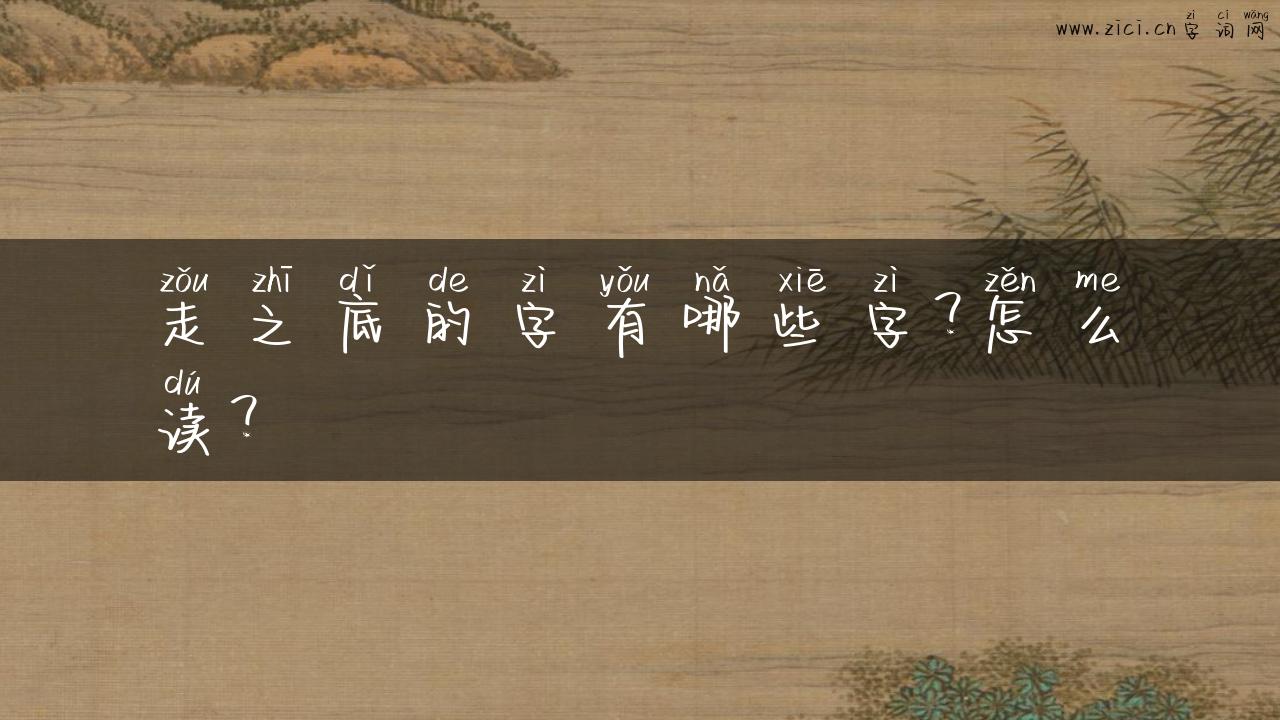 zì cí wǎng
www.zici.cn 字 词 网
zǒu zhī dǐ de zì yǒu nǎ xiē zì zěn me
走 之 底 的 字 有 哪 些 字？怎 么
dú
读？